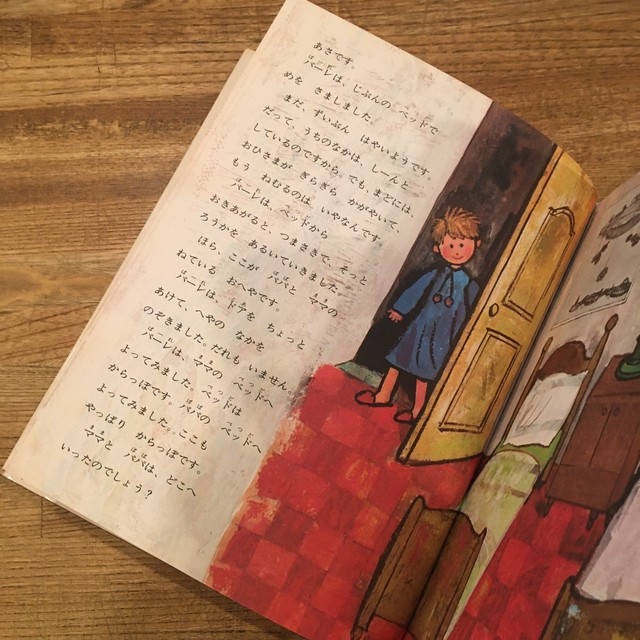 あさです。
パーレは、じぶんの ベッドで
めを さましました。
まだ、ずいぶん はやいようです。
だって、うちのなかは、しーんと
しているのですから。でも、まどには、
おひさまが きらきら かがやいて、
もう ねむるのは いやなんです。
パーレは、ベッドから
おきあがると、つまさきで、そっと
ろうかを あるいていきました。
ほら、ここが パパと ママの
ねている おへやです。
パーレは、ドアを ちょっと
あけて、へやの なかを
のぞきました。だれも いません。
パーレは、ママの ベッドへ
よってみました。ベッドは
からっぽです。パパの ベッドへ
よってみました。ここも
やっぱり からっぽです。
ママと パパは どこへ
いったのでしょう？